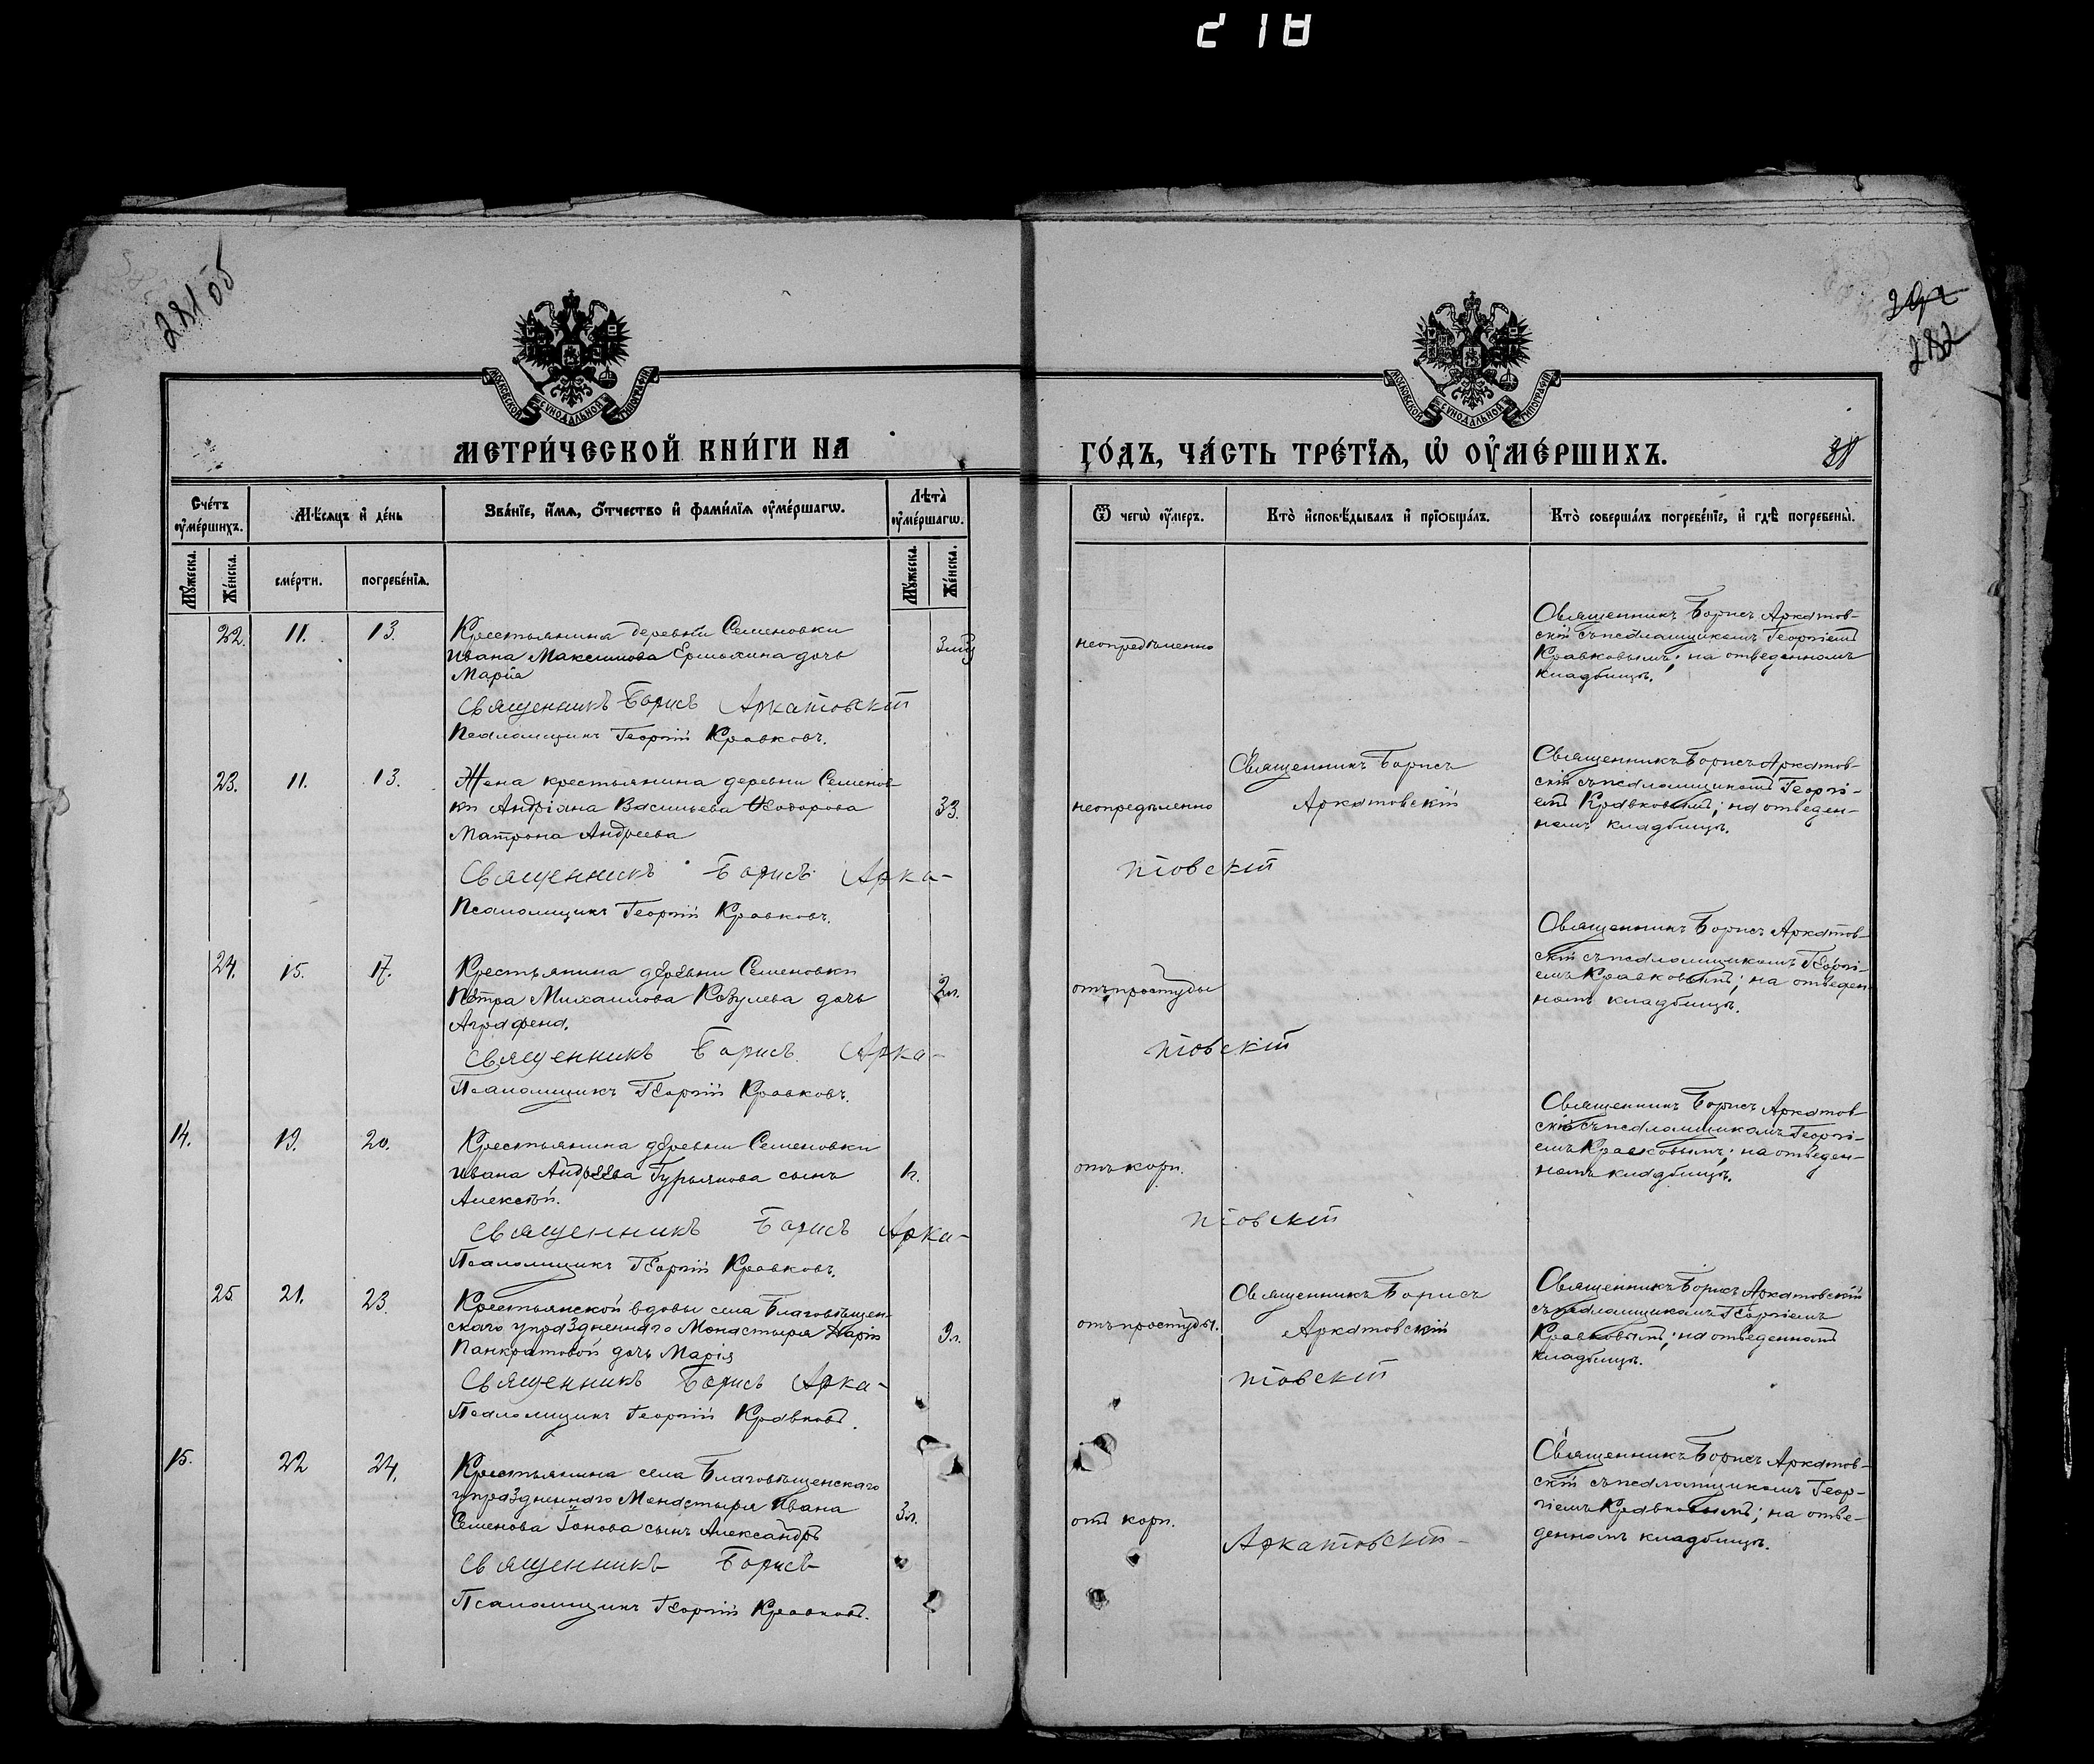 218
281 об
292
282
МОСКОВСКОЙ СУНОДАЛЬНОЙ ТИПОГРАФІИ
МОСКОВСКОЙ СУНОДАЛЬНОЙ ТИПОГРАФІИ
МЕТРИ́ЧЕСКОЙ КНИ́ГИ НА ГО́ДЪ, ЧА́СТЬ ТРЕ́ТЇѦ, Ѡ҆ ОУ҆МЕ́РШИХЪ.
Сче́тъ оу҆ме́ршихъ.
Мѣ́сяцъ и҆ де́нь
Зва́нїе, и҆́мѧ, ѻ҆́тчество и҆ фами́лїѧ оу҆ме́ршагѡ.
Лѣ́та оу҆ме́ршагѡ.
Ѿ чегѡ̀ оу҆́меръ.
Кто̀ и҆сповѣ́дывалъ и҆ прїѻбща́лъ.
Кто̀ соверша́лъ погребе́нїе, и҆ гдѣ̀ погребены̀.
Мꙋ́жеска.
Же́нска.
сме́рти.
погребе́нїѧ.
Мꙋ́жеска.
Же́нска.
22. 11. 13.
Крестьянина деревни Семеновки
Ивана Максимова Ермохина дочь
Марія
Священникъ Борисъ Аркатовскій
Псаломщикъ Георгій Кравковъ.
неопредѣленно
Священникъ Борисъ Аркатов-
скій съ псаломщикомъ Георгіемъ
Кравковымъ; на отведенномъ
кладбищѣ.
23. 11. 13.
Жена крестьянина деревни Семенов-
ки Андріана Васильева Ѳеодорова
Матрона Андреева
33.
Священникъ Борисъ Арка-
товскій
Псаломщикъ Георгій Кравковъ.
неопредѣленно
Священникъ Борисъ
Аркатовскій
Священникъ Борисъ Аркатов-
скій съ псаломщикомъ Георгі-
емъ Кравковымъ; на отведен-
номъ кладбищѣ.
24. 15. 17.
Крестьянина деревни Семеновки
Петра Михаилова дочь
Аграфена.
2 л.
Священникъ Борисъ Арка-
товскій
Псаломщикъ Георгій Кравковъ.
отъ простуды
Священникъ Борисъ Аркатов-
скій съ псаломщикомъ Георгі-
емъ Кравковымъ; на отведен-
номъ кладбищѣ.
14. 19. 20.
Крестьянина деревни Семеновки
Ивана Андреева Гурьянова сынъ
Алексѣй.
Священникъ Борисъ Арка-
товскій
Псаломщикъ Георгій Кравковъ.
отъ кори.
Священникъ Борисъ Аркатов-
скій съ псаломщикомъ Георгі-
емъ Кравковымъ; на отведен-
номъ кладбищѣ.
25. 21. 23.
Крестьянской вдовы села Благовѣщен-
скаго упраздненнаго Монастыря
Панкратовой дочь Марія
9 л.
Священникъ Борисъ Арка-
товскій
Псаломщикъ Георгій Кравковъ.
отъ простуды.
Священникъ Борисъ
Аркатовскій
Священникъ Борисъ Аркатовскій
съ псаломщикомъ Георгіемъ
Кравковымъ; на отведенномъ
кладбищѣ.
15. 22 24.
Крестьянина села Благовѣщенскаго
упраздненнаго Монастыря Ивана
Семенова Іонова сынъ Александръ
3 л.
Священникъ Борисъ
Аркатовскій
Псаломщикъ Георгій Кравковъ.
отъ кори.
Священникъ Борисъ Аркатов-
скій съ псаломщикомъ Геор-
гіемъ Кравковымъ; на отве-
денномъ кладбищѣ.